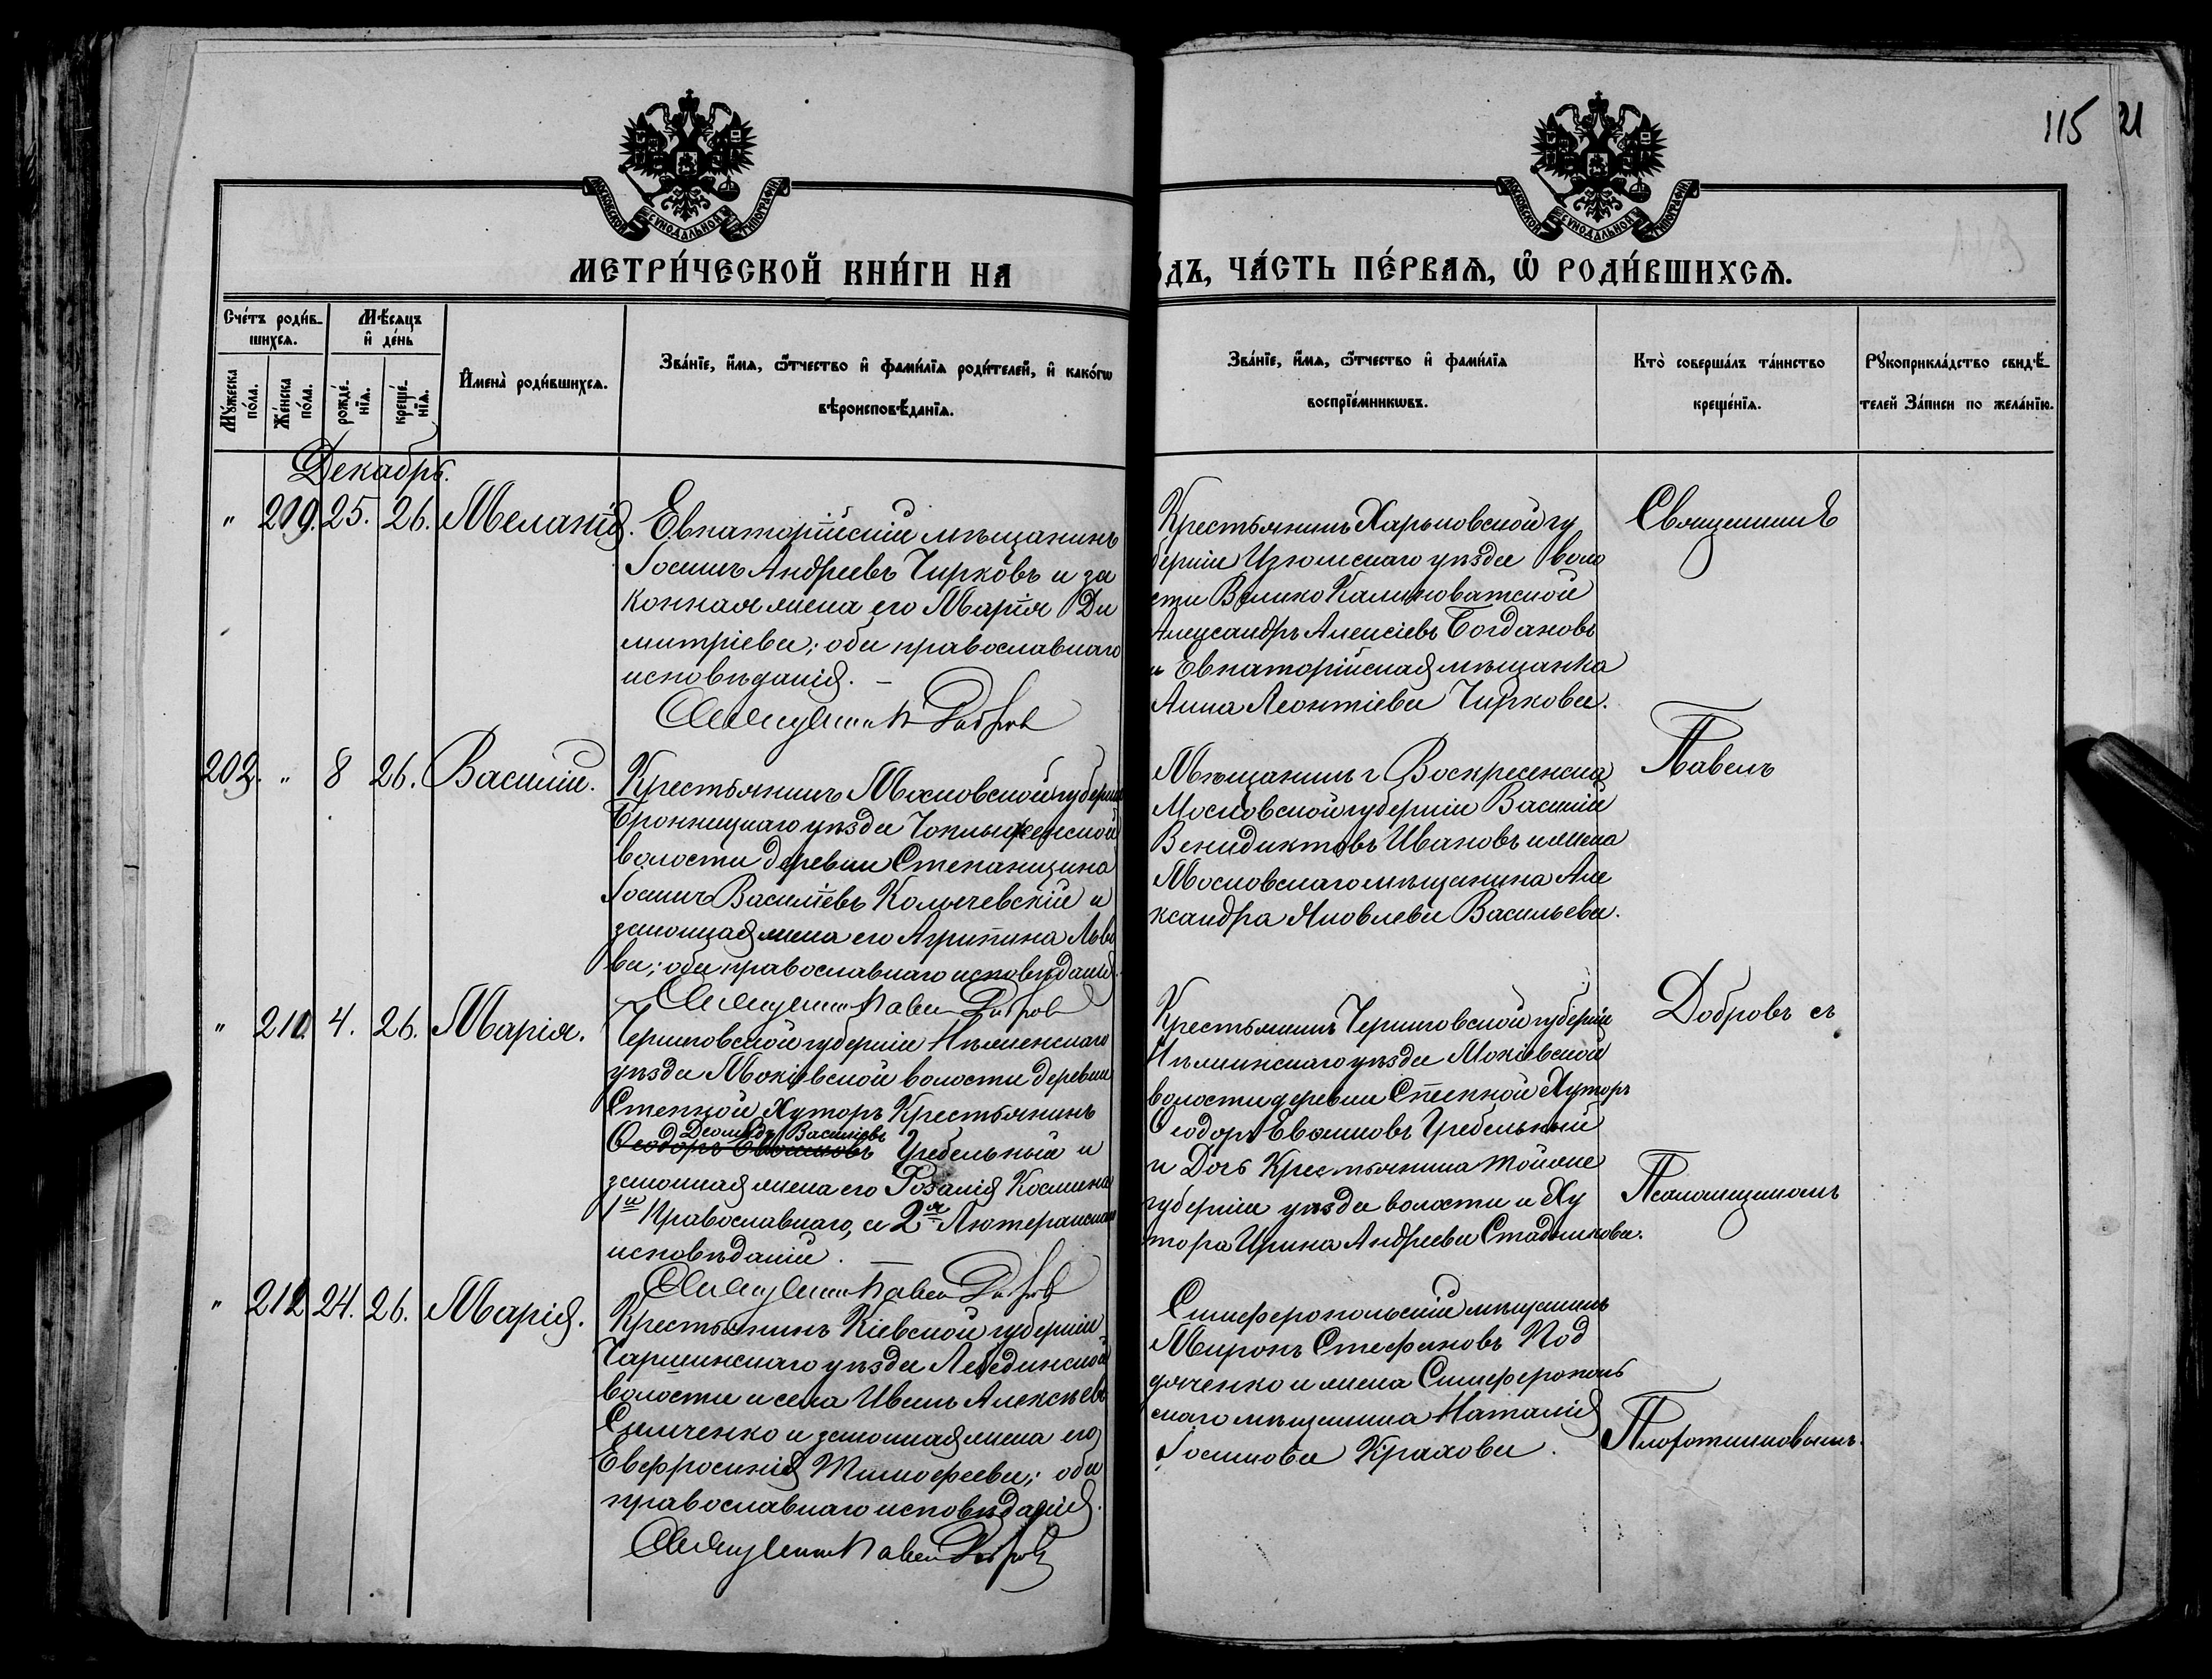 115 21
МОСКОВСКОЙ СѴНОДАЛЬНОЙ ТИПОГРАФІИ
МОСКОВСКОЙ СѴНОДАЛЬНОЙ ТИПОГРАФІИ
МЕТРИ́ЧЕСКОЙ КНИ́ГИ НА
ДЪ, ЧА́СТЬ ПЕ́РВАѦ, Ѡ҆ РОДИ́ВШИХСѦ.
Сче́тъ роди́в-
шихсѧ.
Мꙋжеска по́ла.
Же́нска по́ла.
Мѣ́сѧцъ
и҆ де́нь
рожде́-
нїѧ.
креще́-
нїѧ.
И҆мена̀ роди́вшихсѧ.
Зва́нїе, и҆́мѧ, ѻ҆́тчество и҆ фами́лїѧ роди́телей, и҆ како́гѡ
вѣроисповѣ́данїѧ.
Зва́нїе, и҆́мѧ, ѻ҆́тчество и҆ фами́лїѧ
воспрїе́мникѡвъ.
Кто̀ соверша́лъ та́инство
креще́нїѧ.
Рꙋкоприкла́дство свидѣ́-
телей За́писи по жела́нїю.
Декабрь.
" 219. 25. 26. Меланія.
Евпаторійскій мѣщанинъ
Іосифъ Андреевъ Чирковъ и за
конная жена его Марія Ди
митріева; оба православнаго
исповѣданія. –
Священникъ П Добровъ
Крестьянинъ Харьковской гу
берніи Изюмскаго уѣзда воло
сти Велико Камышеватской
Александръ Алексіевъ Богдановъ
и Евпаторійская мѣщанка
Анна Леонтіева Чиркова.
Священникъ
203. " 8 26. Василій.
Крестьянинъ Московской губерніи
Бронницкаго уѣзда
волости деревни Степанщина
Іосифъ Василіевъ Колычевскій и
законная жена его Агрипина Льво
ва; оба православнаго исповѣданія.
Священникъ Павелъ Добровъ
Мѣщанинъ г. Воскресенска
Московской губерніи Василій
Венидиктовъ Ивановъ и жена
Московскаго мѣщанина Але
ксандра Яковлева Васильева.
Павелъ
" 210. 4. 26. Марія.
Черниговской губерніи Нѣжинскаго
уѣзда Мокіевской волости деревни
Степной Хуторъ Крестьянинъ
Деомидъ Василіевъ
Ѳеодоръ Гребельный и
законная жена его Розалія Космина
1й Православнаго, а 2я Лютеранскаго
исповѣданій. –
Священникъ Павелъ Добровъ
Крестьянинъ Черниговской губерніи
Нѣжинскаго уѣзда Мокіевской
волости деревни Степной Хуторъ
Ѳеодоръ Гребельный
и Дочь Крестьянина тойже
губерніи уѣзда волости и Ху
тора Ирина Андреева Стадникова.
Добровъ съ
Псаломщикомъ
" 212 24. 26. Марія.
Крестьянинъ Кіевской губерніи
уѣзда Лебединской
волости и села Иванъ Алексѣевъ
Симченко и законная жена его
Евфросинія Тимофеева; оба
православнаго исповѣданія.
Священникъ Павелъ Добровъ
Симферопольскій мѣщанинъ
Миронъ Стефановъ Под
дяченко и жена Симферополь
скаго мѣщанина Наталія
Іосифова Крахова.